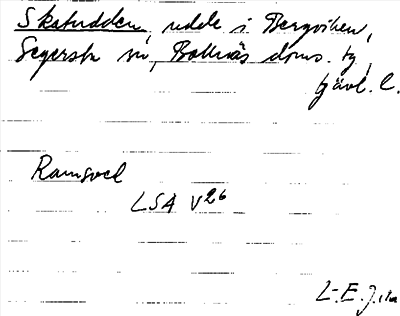 Skatudden, udde i Bergviken,
Segersta sn, Bollnäs doms. tg,
Gävl. l.
Ramsvel
LSA V26
L-E. J.